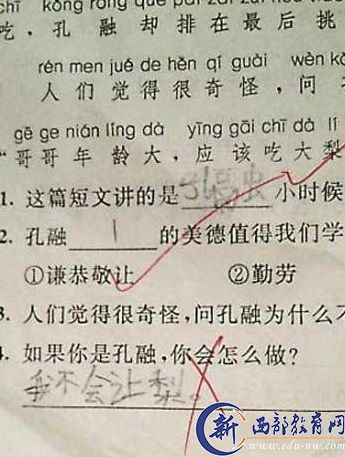 chī kǒng róng què pái zài zuì hòu tiāo
吃，孔 融 却 排 在 最 后 挑
rén men jué de hěn qí guài wèn kǒ
人 们 觉 得 很 奇 怪，问 孔
gē ge nián líng dà yīng gāi chī dà lí
“哥 哥 年 龄 大，应 该 吃 大 梨
1. 这篇短文讲的是 孔融 小时候
2. 孔融 1 的美德值得我们学
①谦恭敬让 ②勤劳
3. 人们觉得很奇怪，问孔融为什么不
4. 如果你是孔融，你会怎么做？
我不会让梨。
新 西部教育网
www.edu-nw.com